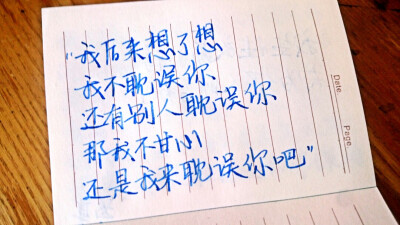 “我后来想了想
我不耽误你
还有别人耽误你
那我不甘心
还是我来耽误你吧”
Date.
Page.